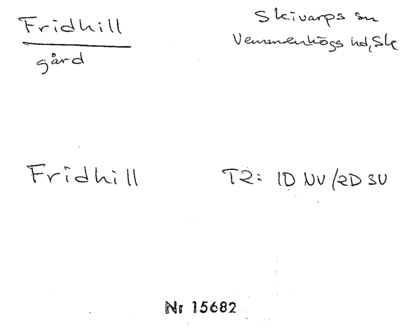 Fridhill
gård
Skivarps sn
Vemmenhögs hd, Sk
Fridhill
T2: 1D NV/2D SV
Nr 15682